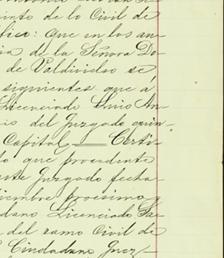 into de lo Civil de
fico: que en los au
cia de la Señora Do
de Valdivielso se
siguientes que á
Licenciado Luis An
io del Juzgado quin
Capital, Certi
que procedente
Juzgado fecha
ciembre proximo
dano Licenciado
del ramo Civil de
Ciudadano Juez